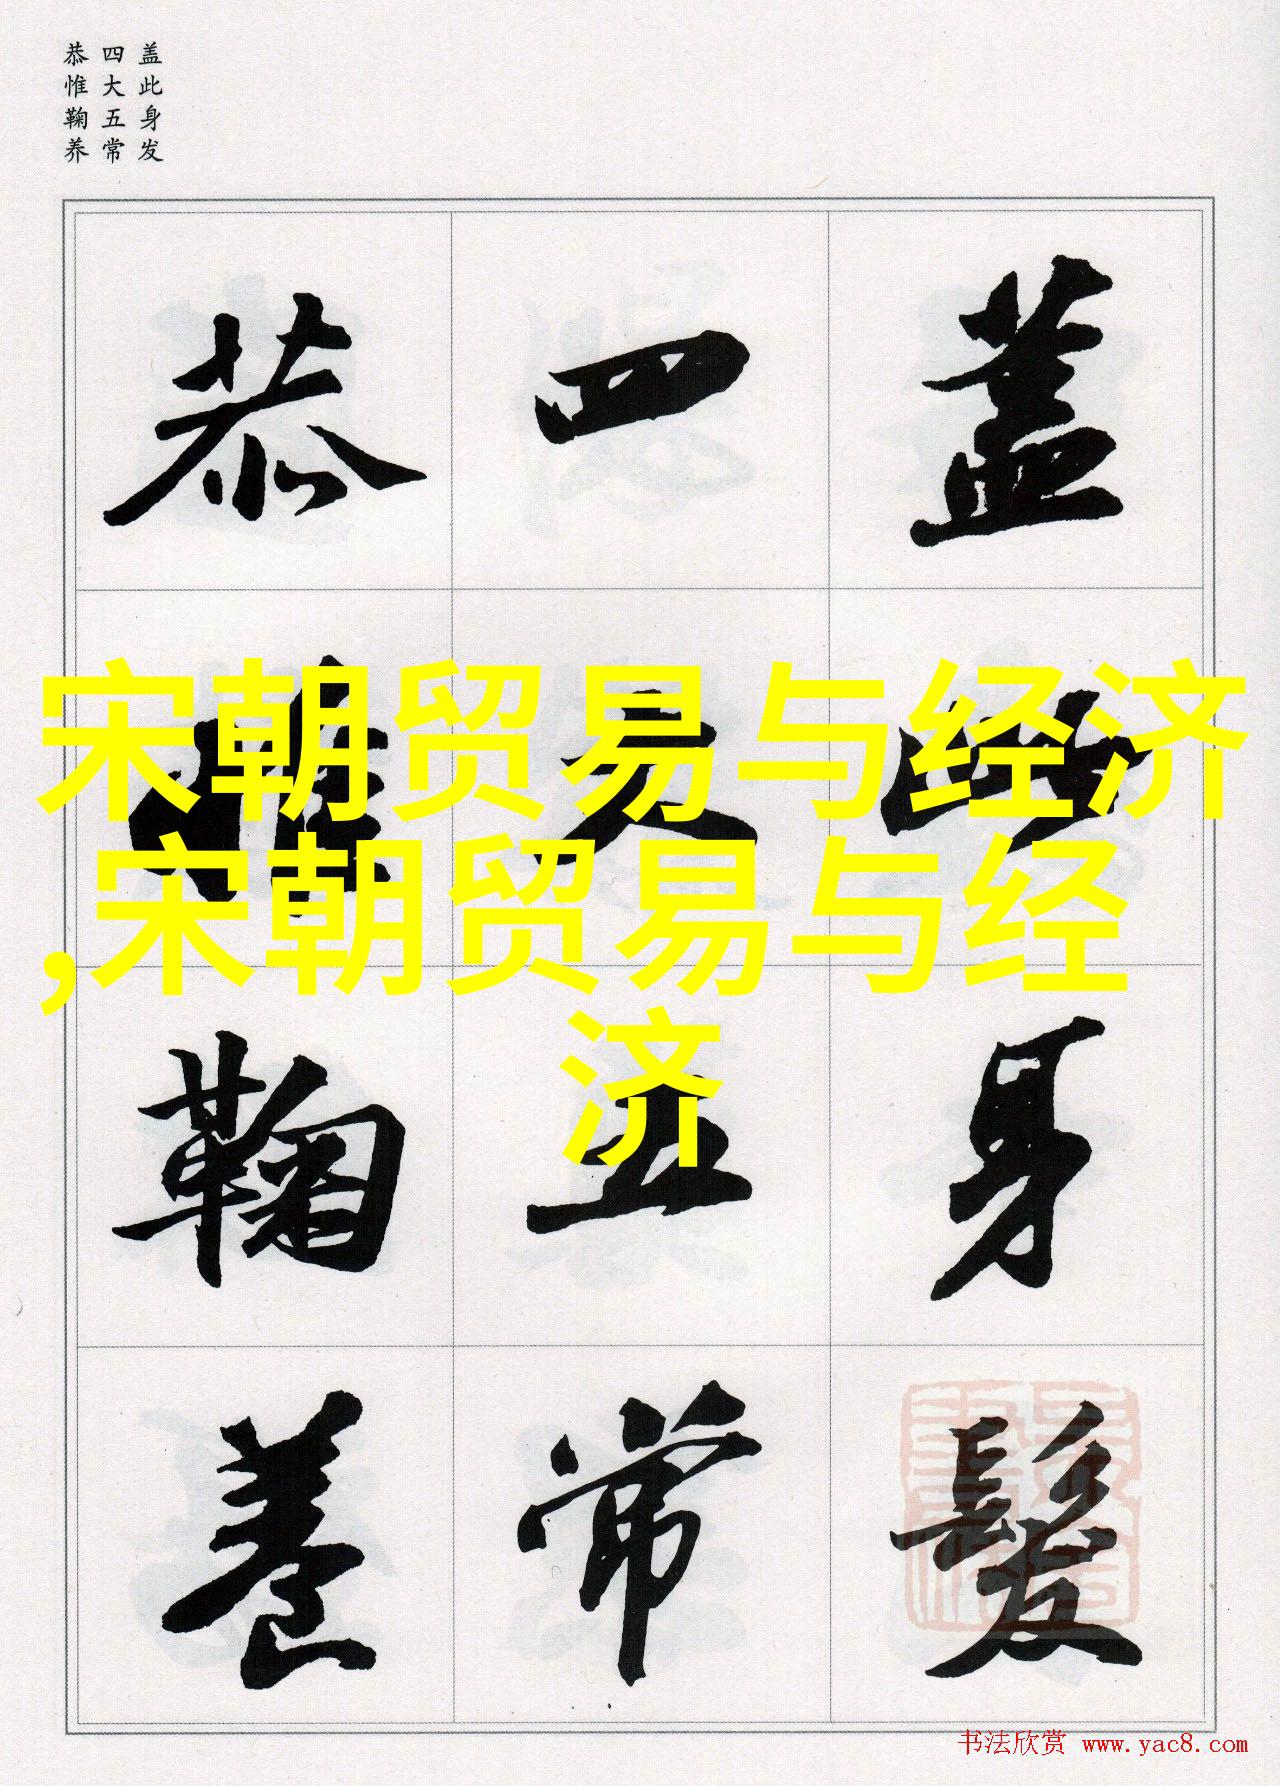 盖此身发
四大五常
恭惟鞠养
盖此身髮
四大五常
恭惟鞠養
宋朝贸易与经济
,宋朝贸易与经
济
书法欣赏 www.yac8.com